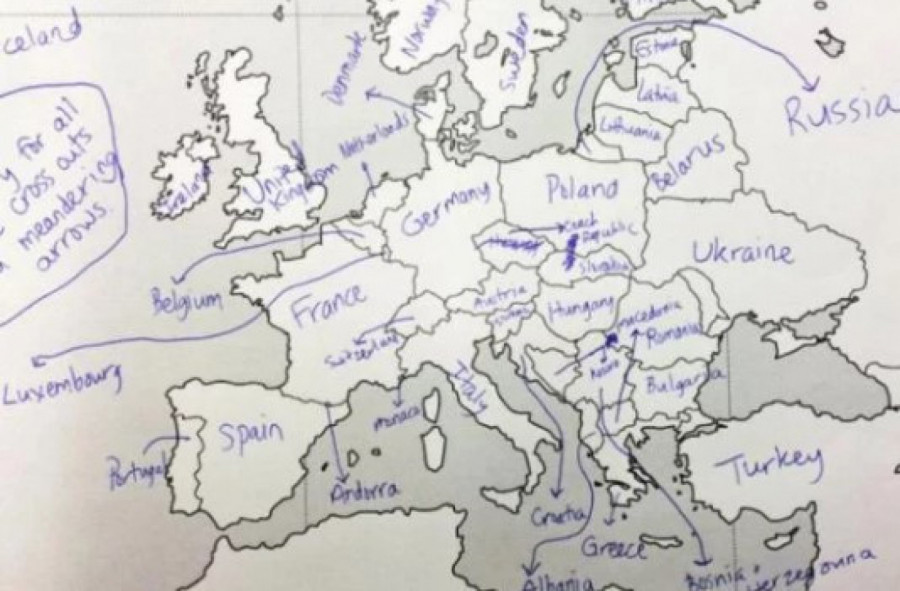 celand
y for all
cross outs
meandering
arrows.
Norway
Sweden
Denmark
Netherlands
Estonia
Latvia
Lithuania
Russia
Belarus
Ireland
United
Kingdom
Germany
Poland
Czech
Republic
Slovakia
Ukraine
Belgium
France
Austria
Hungary
Switzerland
Macedonia
Romania
Luxembourg
Italy
Bulgaria
Monaco
Portugal
Spain
Andorra
Turkey
Croatia
Greece
Albania
Bosnia
Herzegovina